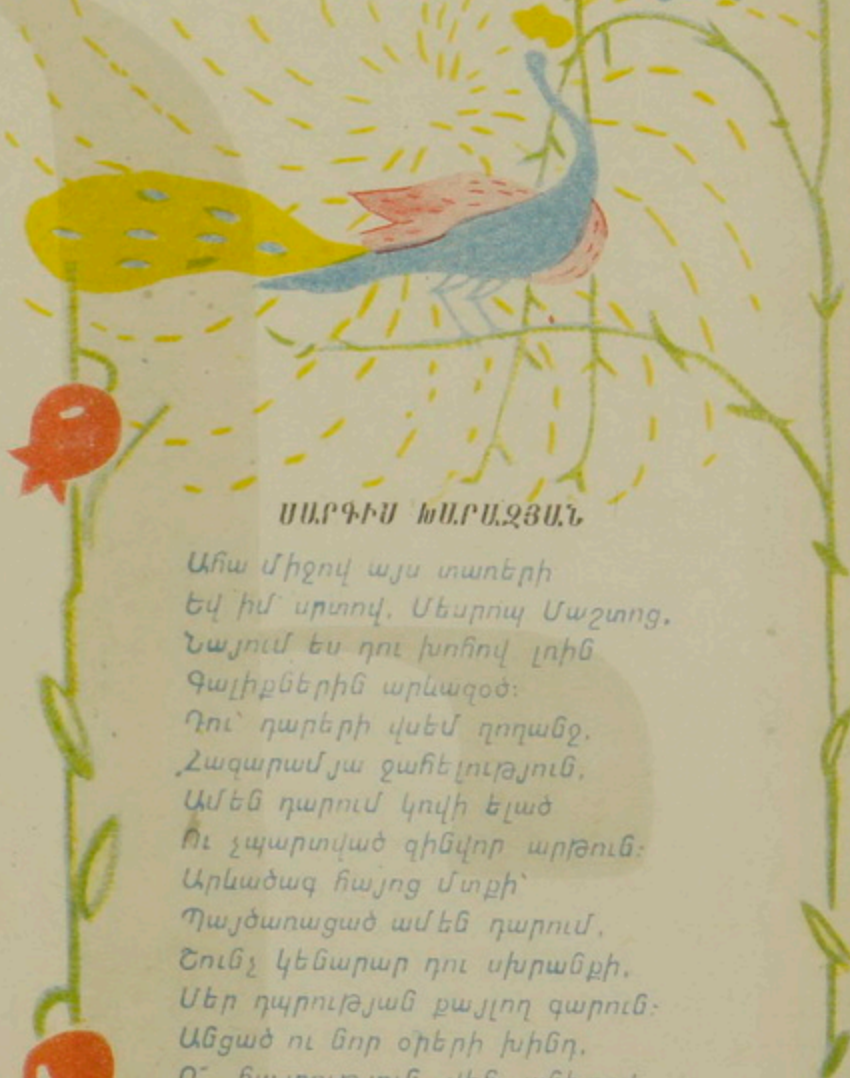 ՍԱՐԳԻՍ ԽԱՐԱԶՅԱՆ
Ահա միջով այս տառերի
Եվ իմ սրտով, Մեսրոպ Մաշտոց,
Նայում ես դու խոհով լռին
Գալիքներին արևազօծ։
Դու՝ դարերի վսեմ ղողանջ,
Հազարամյա ջահելություն,
Ամեն դարում կռվի ելած
Ու չպարտված զինվոր արթուն։
Արևածագ հայոց մտքի՝
Պայծառացած ամեն դարում,
Շունչ կենարար դու սխրանքի,
Մեր դպրության քայլող գարուն։
Անցած ու նոր օրերի խինդ,